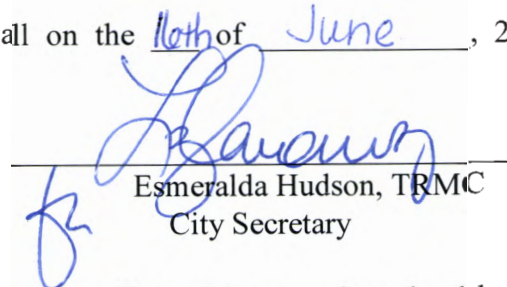 all on the 16th of June, 2
for
Esmeralda Hudson, TRMC
City Secretary